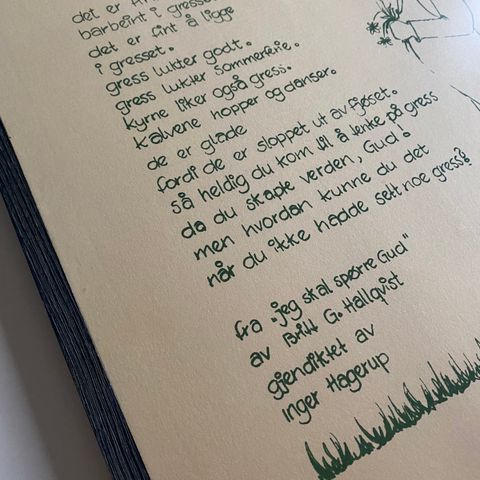 det er
barbeint i gresset
det er fint å ligge
i gresset.
gress lukter godt.
gress lukter sommerferie.
kyrne liker også gress.
kalvene hopper og danser.
de er glade
fordi de er sloppet ut av fjøset.
så heldig du kom til å tenke på gress
da du skapte verden, Gud!
men hvordan kunne du det
når du ikke hadde sett noe gress?
fra "jeg skal spørre Gud"
av Britt G. Hallqvist
gjendiktet av
Inger Hagerup